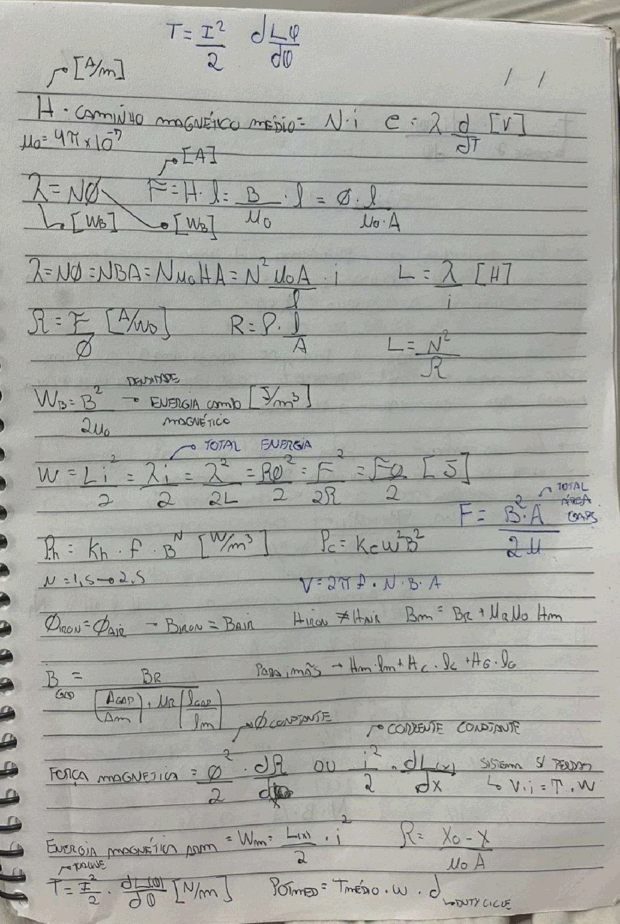 T = I²/2 dLφ/dθ
[A/m]
H · CAMINHO MAGNÉTICO MÉDIO = N·i e = λ d/dT [V]
μ₀ = 4π x 10⁻⁷
[A]
λ = NØ F = H·l = B/μ₀ · l = Ø·l/μ₀·A
[WB] [WB]
λ = NØ = NBA = Nμ₀HA = N² μ₀A/l · i L = λ/i [H]
R = F/Ø [A/Wb] R = ρ·l/A L = N²/R
DENSIDADE
W_B = B²/2μ₀ → ENERGIA CAMPO [J/m³]
MAGNÉTICO
TOTAL ENERGIA
W = Li²/2 = λi/2 = λ²/2L = RØ²/2 = F²/2R = FØ/2 [J]
F = B²·A/2μ TOTAL ÁREA GAPS
Ph = Kh · f · B^N [W/m³] Pc = Kc w²B²
N = 1,5 → 2,5 V = 2π f · N · B · A
ØIRON = ØAIR → BIRON = BAIR HIRON ≠ HAIR Bm = BR + μR μ₀ Hm
B GAP = BR/(AGAP/Am) + μR (lGAP/lm) PARA ímãs → Hm·lm + Hc·lc + HG·lG
Ø CONSTANTE CORRENTE CONSTANTE
FORÇA MAGNETICA = Ø²/2 · dR/dx OU i²/2 · dL(x)/dx SISTEMA S/ PERDAS
V·i = T·W
ENERGIA MAGNÉTICA ARM = Wm = L(x)/2 · i² R = X₀ - X/μ₀ A
TORQUE
T = I²/2 · dL(θ)/dθ [N/m] POTMED = TMÉDIO · w · d
DUTY CICLE